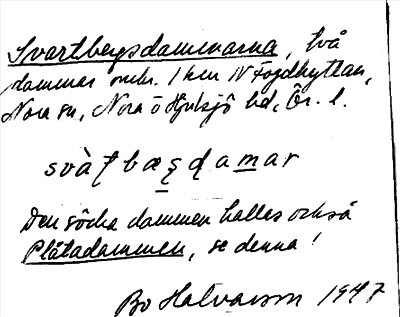 Svartbergsdammarna, två
dammar omkr. 1 km N Fogdhyttan,
Nora sn, Nora o Hjulsjö hd, Ör. l.
Den södra dammen kallas också
Plåtadammen, se denna!
Bo Halvarson 1947